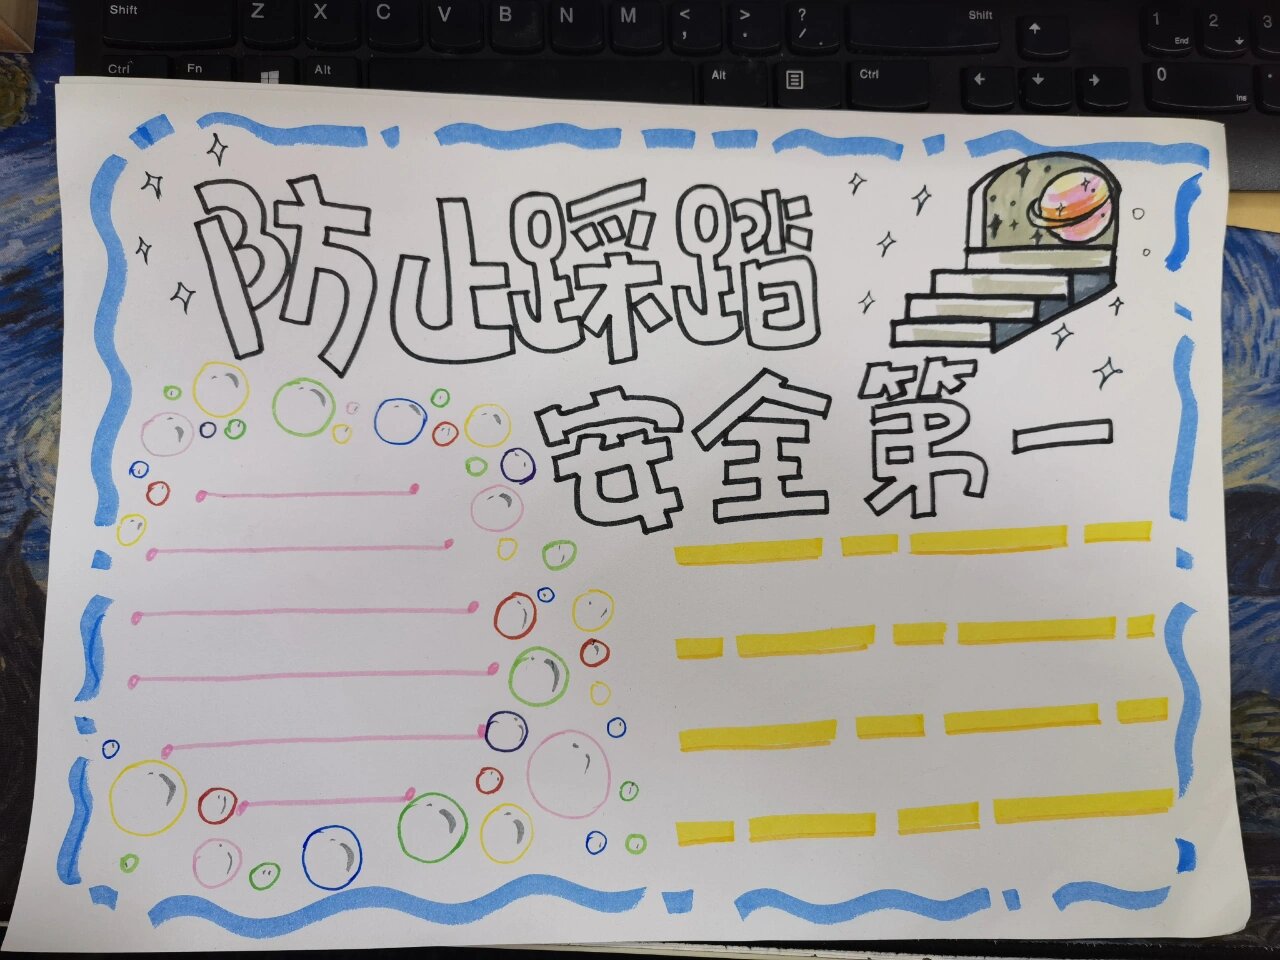 Shift Z X C V B N M < , > . ? / Shift ↑ 1 End 2 ↓ 3
Ctrl Fn Alt Alt Ctrl ← ↓ → 0 Ins
防止踩踏
安全第一